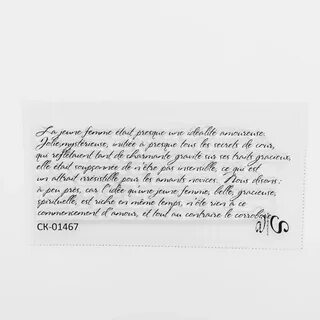 La jeune femme était presque une idéalité amoureuse.
Jolie, mystérieuse, initiée à presque tous les secrets de cour,
qui reflétaient tant de charmante gravité sur ses traits gracieux,
elle était soupçonnée de n'être pas insensible, ce qui est
un attrait irrésistible pour les amants novices. Nous disons:
à peu près, car l'idée qu'une jeune femme, belle, gracieuse,
spirituelle, est riche en même temps, n'ôte rien à ce
commencement d'amour, et tout au contraire le corrobore
CK-01467